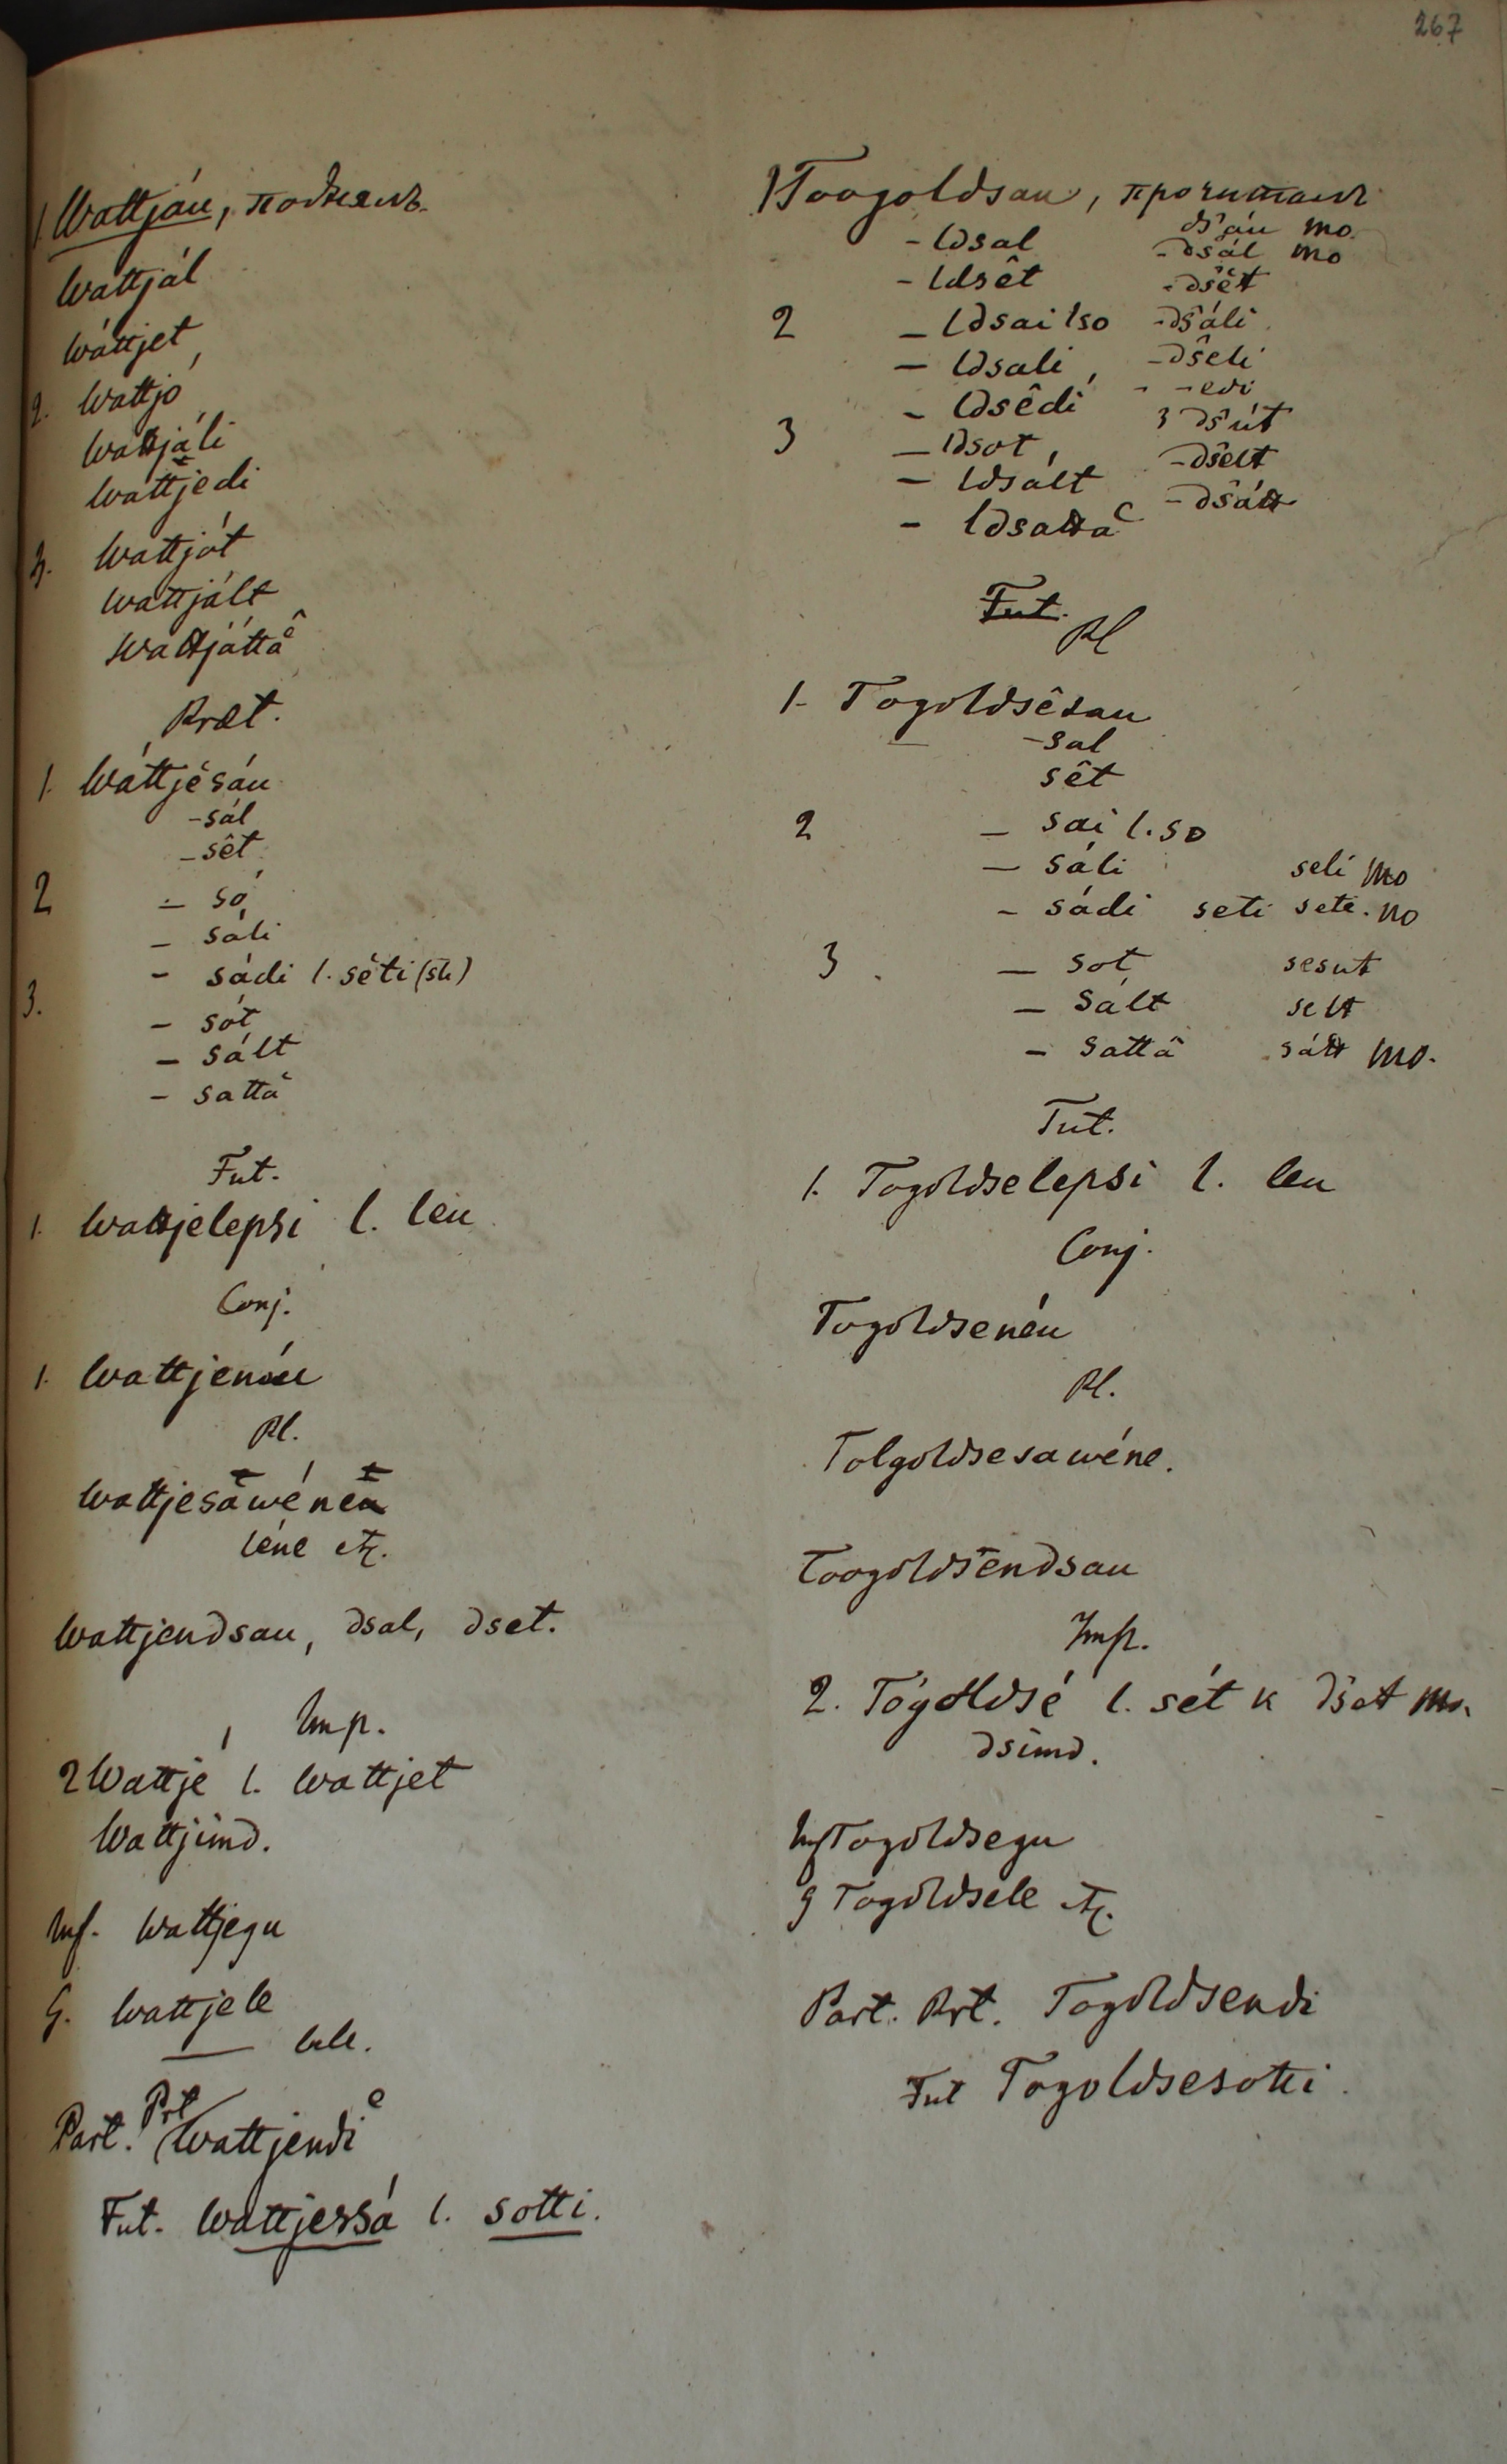 267
1. Wattjáu, поднялъ.
Wattjál
Wáttjet
2. Wattjó
Wattjáli
Wáttjedi
3. Wattjót
Wattjált
Wattjáttä̂
Præt.
1. Wáttjêsáu
- sál
- sêt
2 - só
- sáli
- sádi l. sêti (sk)
3. - sót
- sált
- sattä
Fut.
1. Wattjelepsi l. leu
Conj.
1. Wattjenéu
Pl.
Wattjesawénen
léne etc.
Wattjendsau, dsal, dset.
Imp.
2 Wattjé l. Wattjet
Wattjimd.
Inf. Wattjegu
G. Wattjele
— lele.
Part. Prt Wattjendi
Fut. Wattjessá l. sotti.
1 Toogoldsau, прочиталъ
- ldsal dsáu mo.
- dsál mo
- ldsêt - dsêt
2 - ldsai l so - dsáli
- ldsali - dseli
- ldsêdi - - edi
3 - ldsot 3 dsút
- ldsált - dselt
- ldsattä - dsátt
Fut.
Pl
1. Togoldsêsau
- sal
sêt
2 - sai l. so
- sáli seli mo
- sádi seti sete. no
3 - sot sesut
- sált selt
- sattâ sátt mo.
Fut.
1. Togoldselepsi l. leu
Conj.
Togoldsenéu
Pl.
Tolgoldsesawéne.
Toogoldsendsau
Imp.
2. Tógoldsé l. sét k dset mo.
dsimd.
Inf Togoldsegu
G Togoldsele etc.
Part. Prt. Togoldsendi
Fut Togoldsesotti.